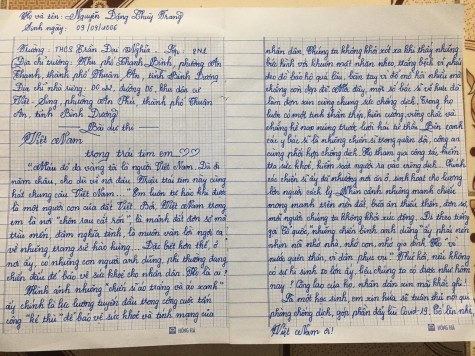 Họ và tên: Nguyễn Đặng Thùy Trang
Sinh ngày: 09/09/2006
Trường: THCS Trần Đại Nghĩa. Lớp: 8A2
Địa chỉ trường: Khu phố Thạnh Bình, phường An
Thạnh, thành phố Thuận An, tỉnh Bình Dương
Địa chỉ nhà riêng: đường D5, khu dân cư
Việt Sing, phường An Phú, thành phố Thuận
An, tỉnh Bình Dương
Bài dự thi
Việt Nam
trong trái tim em
"Màu đỏ da vàng tôi là người Việt Nam. Dù đi
năm châu, cho dù về nơi đâu. Trái tim này cùng
hát chung câu Việt Nam." Em luôn tự hào khi được
là một người con của đất Việt. Bởi, Việt Nam trong
em là nơi "chôn rau cắt rốn", là mảnh đất đơn sơ mà
trìu mến, đậm nghĩa tình, là muôn vàn lời ngợi ca
về những trang sử hào hùng... Đặc biệt hơn thế, ở
nơi ấy, có những con người anh dũng, phi thường đang
chiến đấu để bảo vệ sức khoẻ cho nhân dân. Họ là ai!
Hình ảnh những "chiến sĩ áo trắng và áo xanh"
ấy chính là lực lượng tuyến đầu trong công cuộc tấn
công "kẻ thù" để bảo vệ sức khoẻ và tính mạng của
nhân dân. Chúng ta không khỏi xót xa khi thấy những
bác sĩ với khuôn mặt nhăn nheo, trắng bệch vì phải
đeo đồ bảo hộ quá lâu, bàn tay vì đổ mồ hôi nhiều mà
không còn đẹp đẽ. Mới đây, một số bác sĩ về hưu đã
làm đơn xin cùng chung sức chống dịch. Trong họ
luôn có một tinh thần thép, kiên cường, vững chắc và
không hề nao núng trước lưỡi hái tử thần. Bên cạnh
các y bác sĩ là những chiến sĩ trong quân đội, công an
cùng phối hợp chống dịch. Họ tham gia điều tra, kiểm
tra sức khoẻ, kiểm soát người ra vào vùng dịch. Thậm chí
các chiến sĩ ấy đã nhường nơi ăn ở, sinh hoạt cho lượng
lớn người cách ly. Nhìn cảnh những manh chiếu
mong manh trên nền đất, bữa ăn thiếu thốn, đơn sơ,
mỗi người chúng ta không khỏi xúc động. Đi theo tiếng
gọi Tổ quốc, những chiến binh anh dũng ấy phải nén
nhịn nỗi nhớ nhà, nhớ con, nhớ gia đình. Họ "vì
nước quên thân, vì dân phục vụ". Thử hỏi, nếu không
có sự hi sinh to lớn ấy, liệu chúng ta có được như hôm
nay! Công lao của họ, nhân dân xin mãi khắc ghi!
Là một học sinh, em xin hứa sẽ tuân thủ nội quy
phòng chống dịch, góp phần đẩy lùi Covid 19. Cố lên nhé,
Việt Nam ơi!
HỒNG HÀ
HỒNG HÀ